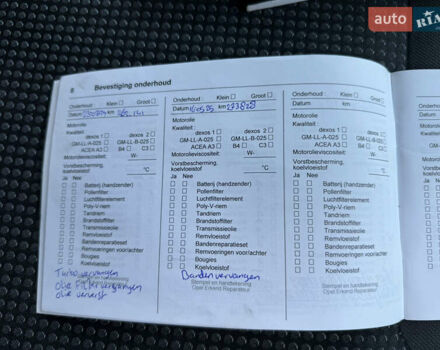 auto
RIA
8 Bevestiging onderhoud
Onderhoud: Klein ☐ Groot ☐
Datum km
Motorolie
Kwaliteit:
dexos 1 ☐ dexos 2 ☐
GM-LL-A-025 ☐ GM-LL-B-025 ☐
ACEA A3 ☐ B4 ☐ C3 ☐
Motorolieviscositeit: W-
Vorstbescherming,
koelvloeistof °C
Ja Nee
☐ ☐ Batterij (handzender)
☐ ☐ Pollenfilter
☐ ☐ Luchtfilterelement
☐ ☐ Poly-V-riem
☐ ☐ Tandriem
☐ ☐ Brandstoffilter
☐ ☐ Transmissieolie
☐ ☐ Remvloeistof
☐ ☐ Bandenreparatieset
☐ ☐ Remvoeringen voor/achter
☐ ☐ Bougies
☐ ☐ Koelvloeistof
Turbo vervangen
olie Filter vervangen
olie ververst
Onderhoud: Klein ☐ Groot ☐
Datum km 273828
Motorolie
Kwaliteit:
dexos 1 ☐ dexos 2 ☐
GM-LL-A-025 ☐ GM-LL-B-025 ☐
ACEA A3 ☐ B4 ☐ C3 ☐
Motorolieviscositeit: W-
Vorstbescherming,
koelvloeistof °C
Ja Nee
☐ ☐ Batterij (handzender)
☐ ☐ Pollenfilter
☐ ☐ Luchtfilterelement
☐ ☐ Poly-V-riem
☐ ☐ Tandriem
☐ ☐ Brandstoffilter
☐ ☐ Transmissieolie
☐ ☐ Remvloeistof
☐ ☐ Bandenreparatieset
☐ ☐ Remvoeringen voor/achter
☐ ☐ Bougies
☐ ☐ Koelvloeistof
Banden vervangen
Stempel en handtekening
Opel Erkend Reparateur
Onderhoud: Klein ☐ Groot ☐
Datum km
Motorolie
Kwaliteit:
dexos 1 ☐ dexos 2 ☐
GM-LL-A-025 ☐ GM-LL-B-025 ☐
ACEA A3 ☐ B4 ☐ C3 ☐
Motorolieviscositeit: W-
Vorstbescherming,
koelvloeistof °C
Ja Nee
☐ ☐ Batterij (handzender)
☐ ☐ Pollenfilter
☐ ☐ Luchtfilterelement
☐ ☐ Poly-V-riem
☐ ☐ Tandriem
☐ ☐ Brandstoffilter
☐ ☐ Transmissieolie
☐ ☐ Remvloeistof
☐ ☐ Bandenreparatieset
☐ ☐ Remvoeringen voor/achter
☐ ☐ Bougies
☐ ☐ Koelvloeistof
Stempel en handtekening
Opel Erkend Reparateur